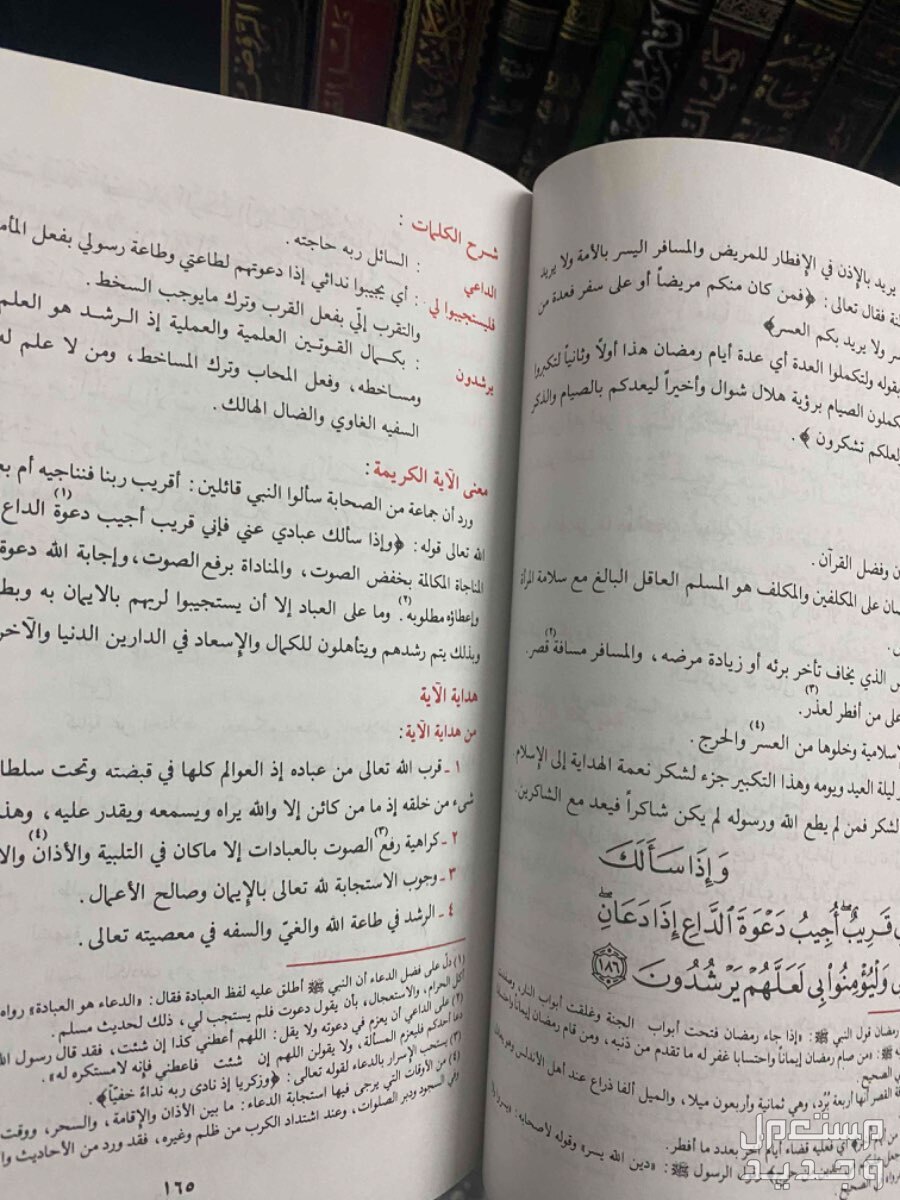 يريد بالإذن في الإفطار للمريض والمسافر اليسر بالأمة ولا يريد
فقال تعالى: ﴿فمن كان منكم مريضاً أو على سفر فعدة من
ولا يريد بكم العسر﴾
بقوله ولتكملوا العدة أي عدة أيام رمضان هذا أولاً وثانياً لتكبروا
الصيام برؤية هلال شوال وأخيراً ليعدكم بالصيام والذكر
تشكرون ﴾.
وفضل القرآن.
على المكلفين والمكلف هو المسلم العاقل البالغ مع سلامة المرأة
الذي يخاف تأخر برئه أو زيادة مرضه، والمسافر مسافة قصر.(٢)
على من أفطر لعذر.(٣)
وخلوها من العسر(٤) والحرج.
ليلة العيد ويومه وهذا التكبير جزء لشكر نعمة الهداية إلى الإسلام
الشكر فمن لم يطع الله ورسوله لم يكن شاكراً فيعد مع الشاكرين.
وَإِذَا سَأَلَكَ
قَرِيبٌ أُجِيبُ دَعْوَةَ ٱلدَّاعِ إِذَا دَعَانِ
وَلْيُؤْمِنُوا۟ بِى لَعَلَّهُمْ يَرْشُدُونَ ١٨٦
رمضان قول النبي ﷺ: «إذا جاء رمضان فتحت أبواب الجنة وغلقت أبواب النار، وصفدت
ﷺ: «من صام رمضان إيماناً واحتسابا غفر له ما تقدم من ذنبه، ومن قام رمضان إيماناً
الصحيح.
القصر أنها أربعة بُرُد، وهي ثمانية وأربعون ميلا، والميل ألفا ذراع عند أهل الأندلس
أي فعليه قضاء أيام أخر بعدد ما أفطر.
الرسول ﷺ: «دين الله يسر» وقوله لأصحابه:
شرح الكلمات :
الداعي : السائل ربه حاجته .
فليستجيبوا لي : أي يجيبوا ندائي إذا دعوتهم لطاعتي وطاعة رسولي بفعل
والتقرب إليّ بفعل القرب وترك مايوجب السخط.
يرشدون : بكمال القوتين العلمية والعملية إذ الرشد هو العلم
ومساخطه، وفعل المحاب وترك المساخط، ومن لا علم له
السفيه الغاوي والضال الهالك .
معنى الآية الكريمة :
ورد أن جماعة من الصحابة سألوا النبي قائلين : أقريب ربنا فنناجيه أم
الله تعالى قوله : ﴿وإذا سألك عبادي عني فإني قريب أجيب دعوة(١) الداع
المناجاة المكالمة بخفض الصوت، والمناداة برفع الصوت، وإجابة الله دعوة
وإعطاؤه مطلوبه.(٢) وما على العباد إلا أن يستجيبوا لربهم بالايمان به
وبذلك يتم رشدهم ويتأهلون للكمال والإسعاد في الدارين الدنيا
هداية الآية
من هداية الآية:
١ - قرب الله تعالى من عباده إذ العوالم كلها في قبضته وتحت
شيء من خلقه إذ ما من كائن إلا والله يراه ويسمعه ويقدر عليه، وهذ
٢ - كراهية رفع(٣) الصوت بالعبادات إلا ماكان في التلبية والأذان(٤)
٣ - وجوب الاستجابة لله تعالى بالإيمان وصالح الأعمال .
٤ - الرشد في طاعة الله والغيّ والسفه في معصيته تعالى .
(١) دلّ على فضل الدعاء أن النبي ﷺ أطلق عليه لفظ العبادة فقال: «الدعاء هو العبادة» رواه
أكل الحرام، والاستعجال، بأن يقول دعوت فلم يستجب لي، ذلك لحديث مسلم.
(٢) على الداعي أن يعزم في دعوته ولا يقل: اللهم أعطني كذا إن شئت، فقد قال رسول
دعا أحدكم فليعزم المسألة، ولا يقولن اللهم إن شئت فاعطني فإنه لامستكره له».
(٣) يستحب الإسرار بالدعاء لقوله تعالى: ﴿وزكريا إذ نادى ربه نداءً خفيّاً﴾.
(٤) من الأوقات التي يرجى فيها استجابة الدعاء: ما بين الأذان والإقامة، والسحر، ووقت
وفي السجود ودبر الصلوات، وعند اشتداد الكرب من ظلم وغيره، فقد ورد من الأحاديث
١٦٥
مستعمل
وجديد